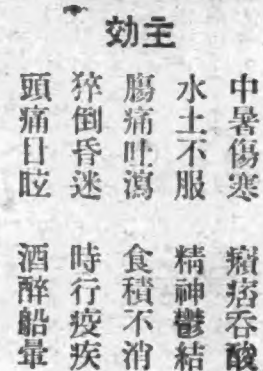 主効
中暑傷寒　癪痞吞酸
水土不服　精神鬱結
膓痛吐瀉　食積不消
猝倒昏迷　時行疫疾
頭痛目眩　酒醉船暈